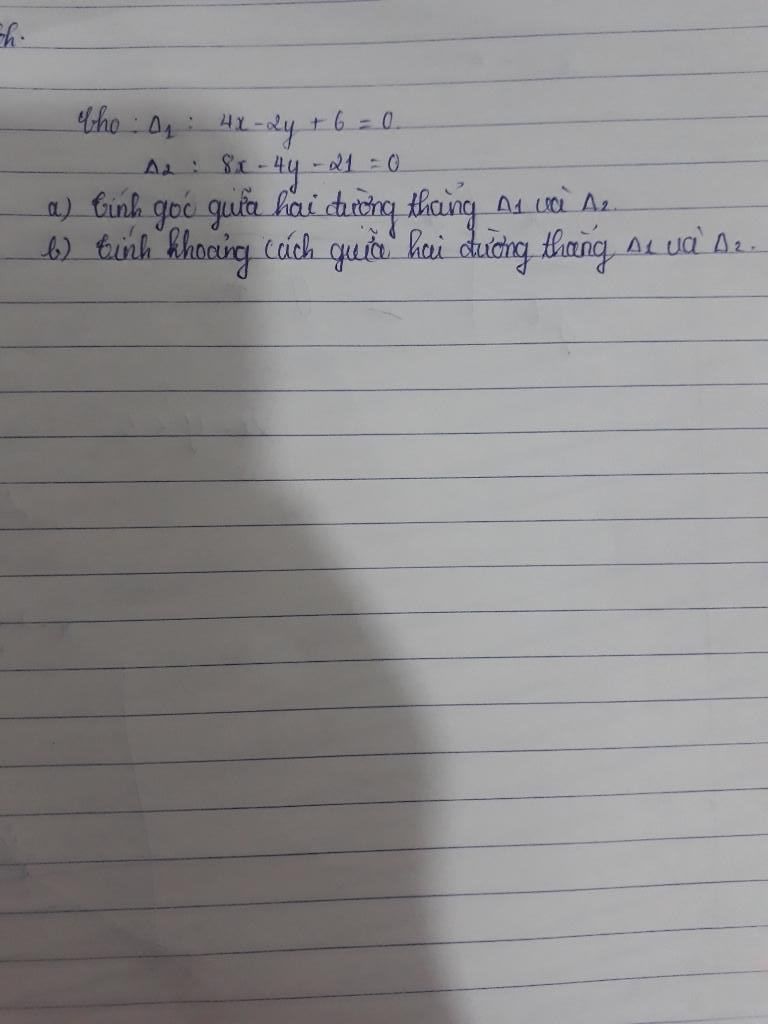 ch.
Cho : Δ1 : 4x - 2y + 6 = 0.
Δ2 : 8x - 4y - 21 = 0
a) tính góc giữa hai đường thẳng Δ1 và Δ2.
b) tính khoảng cách giữa hai đường thẳng Δ1 và Δ2.